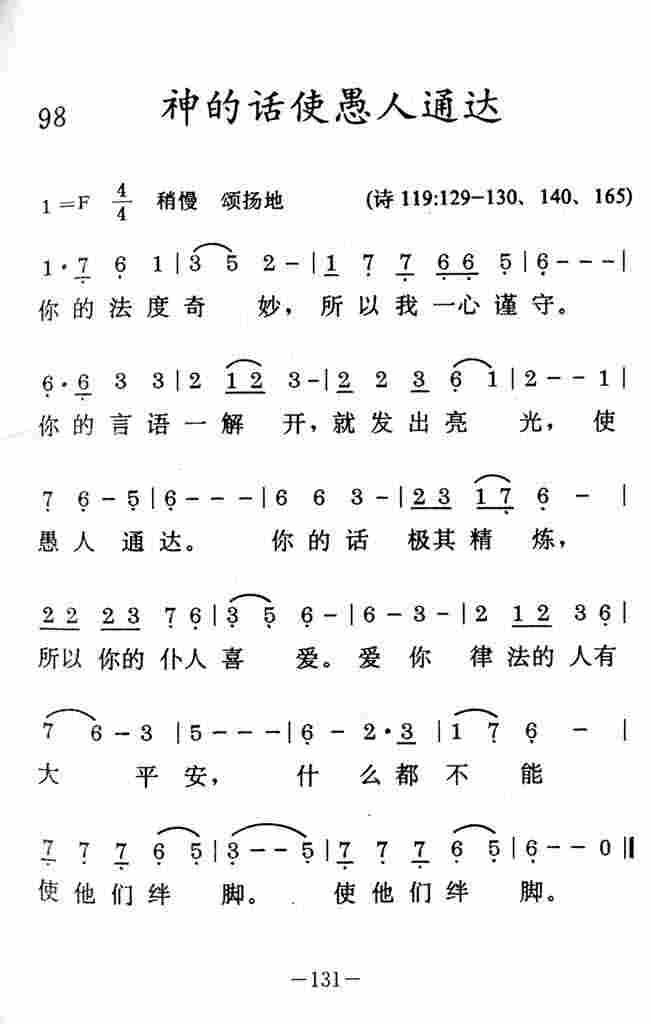 98
神的话使愚人通达
1=F 4/4 稍慢 颂扬地 (诗119:129-130、140、165)
1·7 6 1|3 5 2-|1 7 7 66 5|6---|
你的法度奇 妙，所以我一心谨守。
6·6 3 3|2 12 3-|2 2 3 6 1|2--1|
你的言语一解 开，就发出亮 光，使
7 6-5|6---|6 6 3-|23 17 6 - |
愚人 通达。 你的话 极其精 炼，
22 23 76|3 5 6-|6-3-|2 12 36|
所以你的仆人喜 爱。爱你 律法的人有
7 6-3 |5---|6- 2·3|1 7 6 - |
大 平安， 什 么都不 能
7 7 7 6 5|3--5|7 7 7 6 5|6--0‖
使他们绊 脚。 使他们绊 脚。
-131-